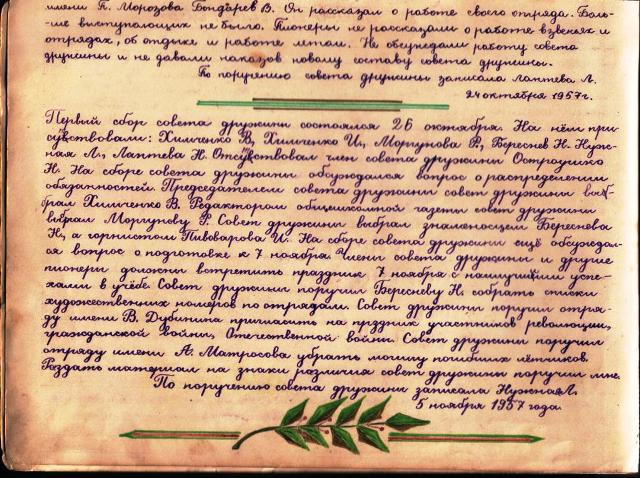 имени П. Морозова Бондарев В. Он рассказал о работе своего отряда. Боль-
ше выступающих не было. Пионеры не рассказали о работе в звеньях и
отрядах, об отдыхе и работе летом. Не обсуждали работу совета
дружины и не давали наказов новому составу совета дружины.
По поручению совета дружины записала Лаптева Л.
24 октября 1957 г.
Первый сбор совета дружины состоялся 26 октября. На нём при-
сувствовали: Химченко В, Химченко И., Моргунова Р, Береснев Н. Нуж-
ная Л., Лаптева Н. Отсувствовал член совета дружины Остроушко
Н. На сборе совета дружины обсуждался вопрос о распределении
обязанностей. Председателем совета дружины совет дружины выб-
брал Химченко В. Редактором общешколной газеты совет дружины
выбрал Моргунову Р. Совет дружины выбрал знаменосцем Береснева
Н., а горнистом Пивоварова И. На сборе совета дружины ещё обсуждал-
ся вопрос о подготовке к 7 ноября. Члены совета дружины и другие
пионеры должны встретить праздник 7 ноября с наилучшими успе-
хами в учёбе. Совет дружины поручил Бересневу Н. собрать списки
художественных номеров по отрядам. Совет дружины поручил отря-
ду имени В. Дубинина пригласить на праздник участников революции,
гражданской войны, Отечественной войны. Совет дружины поручил
отряду имени А. Матросова убрать могилу погибших лётчиков.
Раздать материал на знаки различия совет дружины поручил мне.
По поручению совета дружины записала Нужная Л.
5 ноября 1957 года.